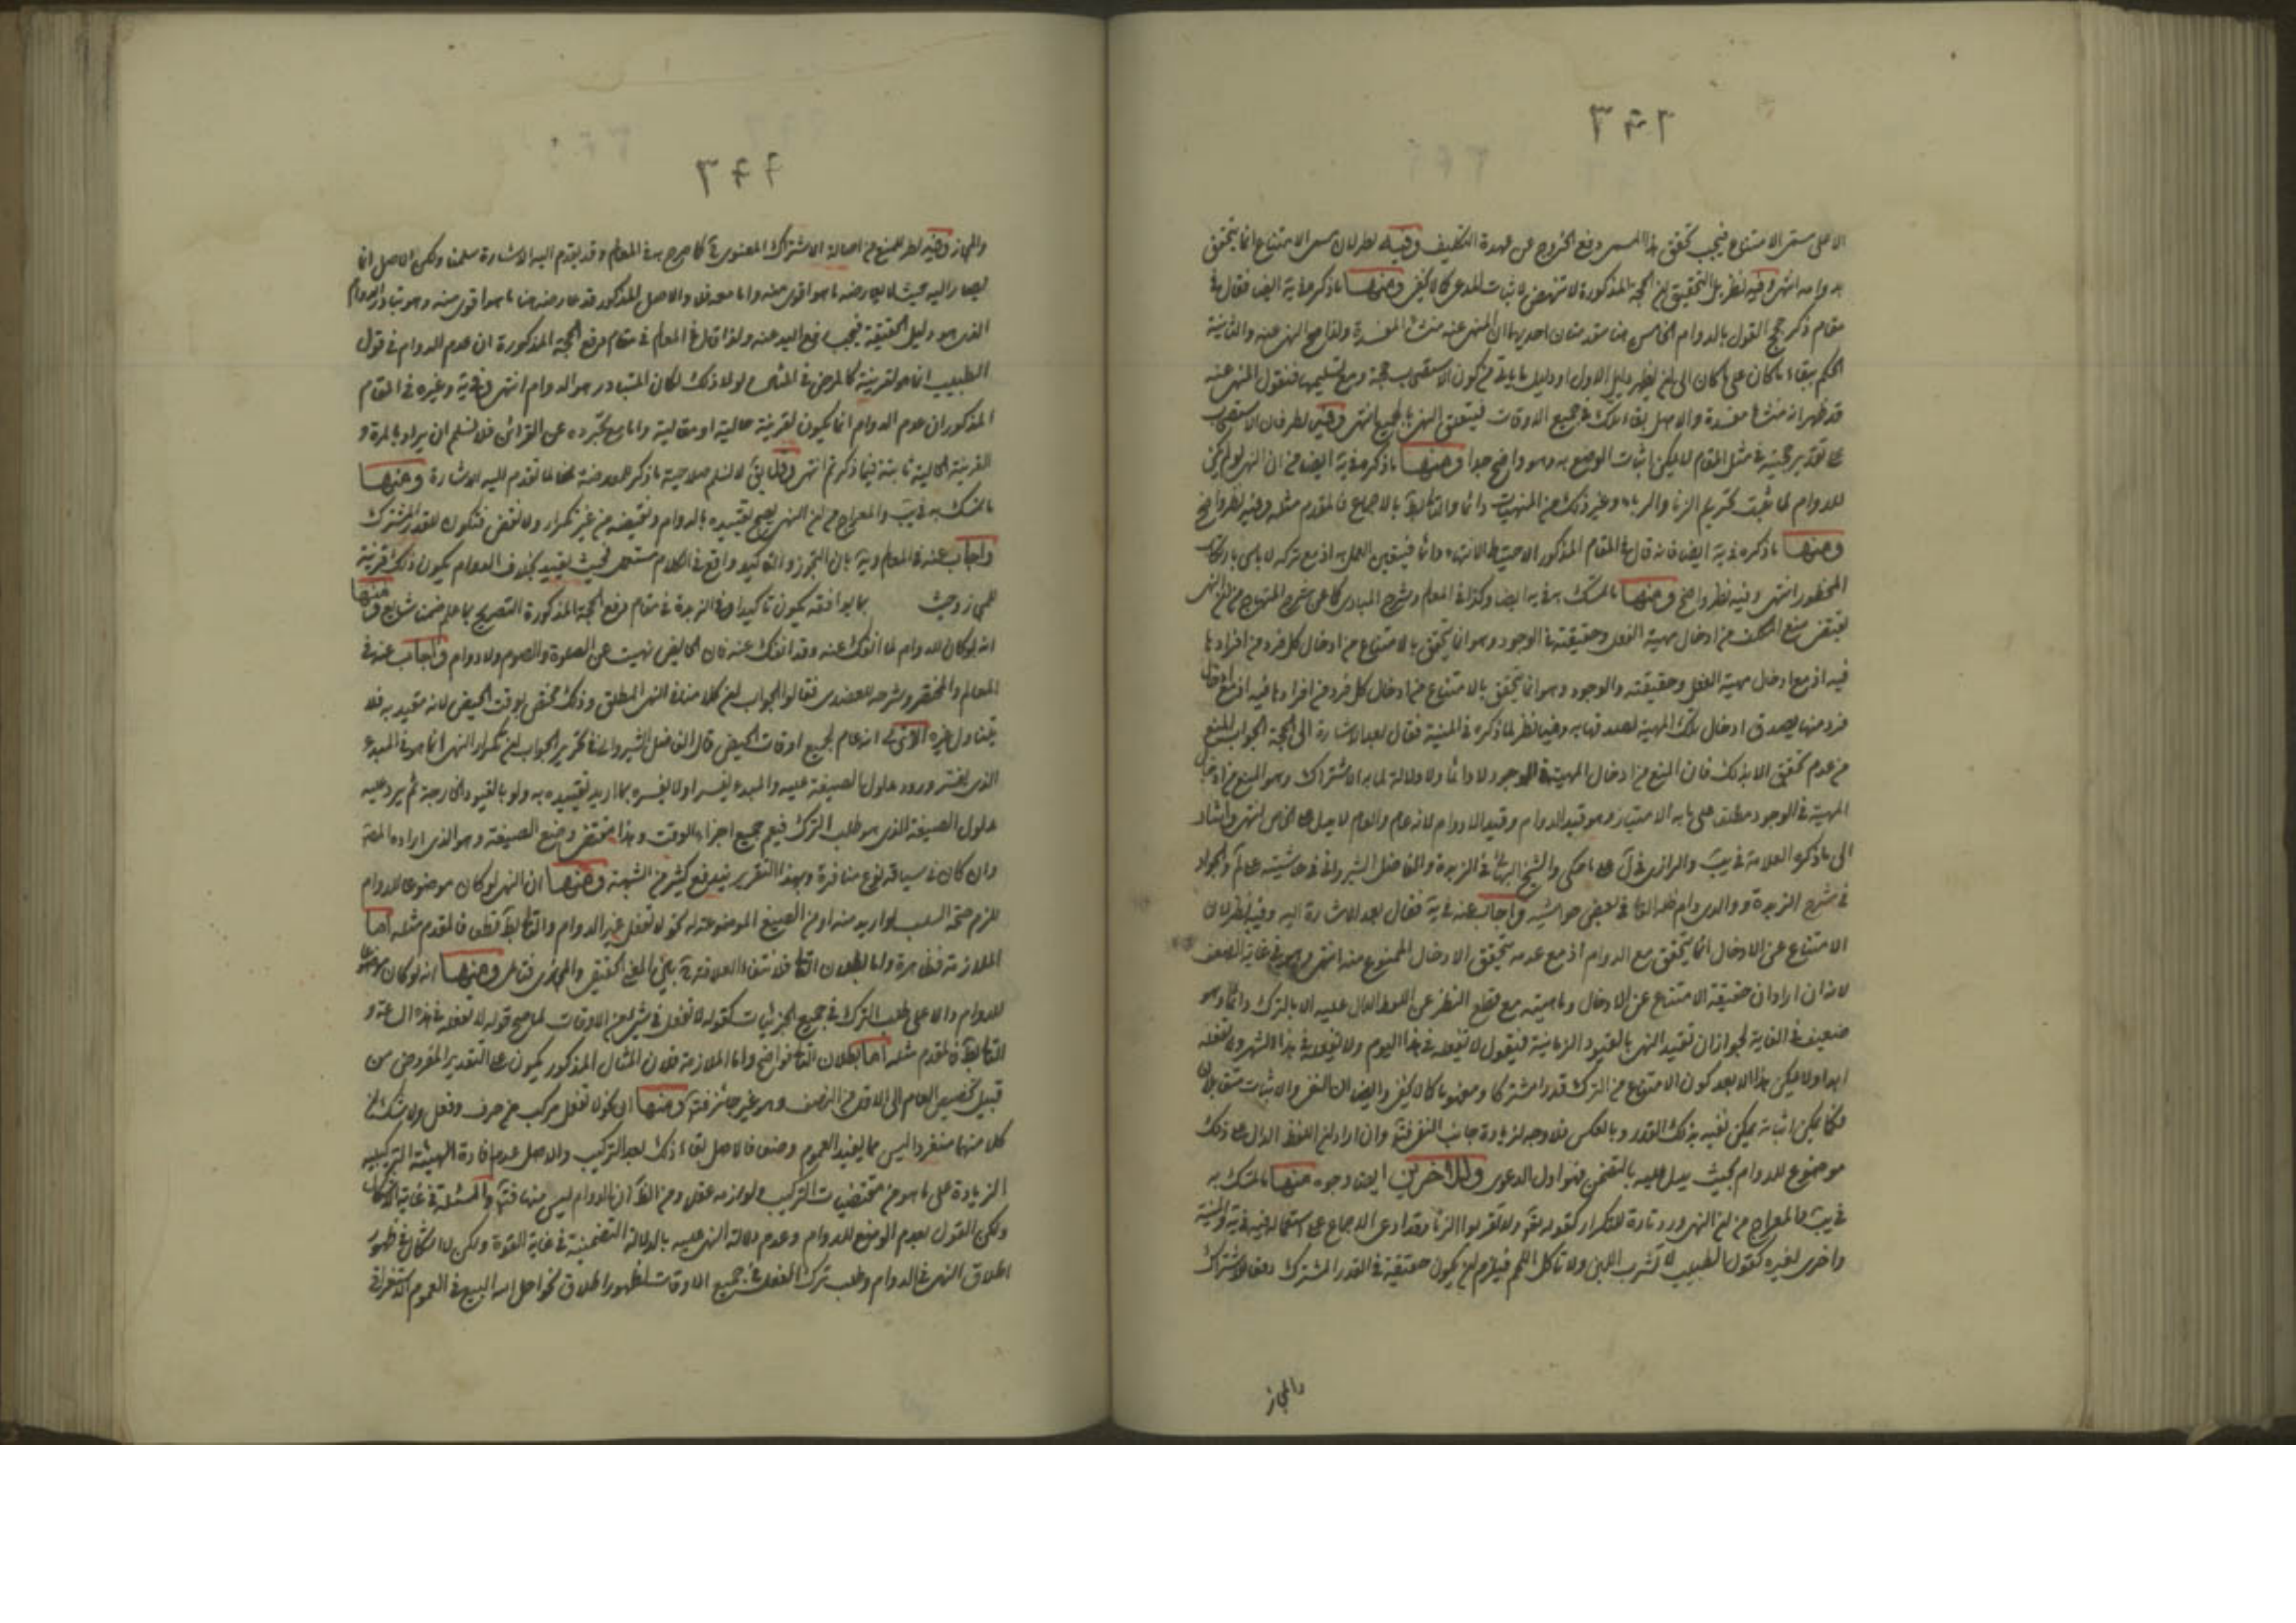 ٣٩٦
الا على مستمر الامتناع فيجب تحقق هذا المسمى دفع الخروج عن عهدة التكليف وفيه نظر لان مسمى الامتناع انما يتحقق
بدوامه انتهى وفيه نظر بل التحقيق ان الحجة المذكورة لا تنهض لاثبات المدعى كما لا يخفى ومنها ما ذكره في ية ايض فقال في
مقام ذكر حجج القول بالدوام الخامس هنا مقدمتان احديهما ان المنهى عنه منشا المفسدة ولذا صح النهى عنه والثانية
الحكم ببقاء ما كان على ما كان الى ان يظهر دليل الاول او دليل ما ياتى من كون الاستصحاب حجة ومع تسليمهما فنقول المنهى عنه
قد ظهر انه منشا مفسدة والاصل بقاء ذلك في جميع الاوقات فيتعلق النهى بالجميع انتهى وفيه نظر فان الاستصحاب
على تقدير حجيته في مثل المقام لا يمكن اثبات الوضع به وهو واضح جدا ومنها ما ذكره في ية ايض من ان النهى لو لم يكن
للدوام لما ثبت تحريم الزنا والربا وغير ذلك من المنهيات دائما والتالى بط بالاجماع فالمقدم مثله وفيه نظر واضح
ومنها ما ذكره في ية ايض فانه قال في المقام المذكور الاحتياط الانتهاء دائما فيتعين العمل به اذ مع تركه لا ياس بارتكاب
المحظور انتهى وفيه نظر واضح ومنها ما تمسك به في ية ايضا وكذا في المعالم وشرح المبادى كما عن شرح المنهاج من ان النهى
يقتضى منع المكلف من ادخال مهية الفعل وحقيقته في الوجود وهو انما يتحقق بالامتناع من ادخال كل فرد من افرادها
فيه اذ مع ادخال مهية الفعل وحقيقته والوجود وهو انما يتحقق بالامتناع من ادخال كل فرد من افرادها فيه اذ مع ادخال
فرد منها يصدق ادخال تلك المهية لصدقها به وفيه نظر لما ذكره في المنية فقال بعد الاشارة الى الحجة الجواب المنع
من عدم تحقق الا بذلك فان المنع من ادخال المهية في الوجود لا دائما ولا دلالة لما به الاشتراك وهو المنع من ادخال
المهية في الوجود مطلقا على ما به الامتياز وهو قيد الدوام وقيد اللادوام لانه عام والعام لا يدل على الخاص انتهى واشار
الى ما ذكره العلامة في يب والرازى في آن على ما حكى والشيخ البهائى في الزبدة والفاضل الشيروانى في حاشيته على لم والجواد
في شرح الزبدة ووالدى دام ظله العالى في بعض حواشيه واجاب عنه في ية فقال بعد الاشارة اليه وفيه نظر لان
الامتناع عن الادخال انما يتحقق مع الدوام اذ مع عدمه يتحقق الادخال الممنوع منه انتهى وهو في غاية الضعف
لانه ان اراد ان حقيقة الامتناع عن الادخال وماهيته مع قطع النظر عن اللفظ الدال عليه الا بالترك دائما وهو
ضعيف في الغاية لجواز ان تقيد النهى بالقيود الزمانية فيقول لا تفعله في هذا اليوم ولا تفعله في هذا الشهر ولا تفعله
ابدا ولا يمكن هذا الا بعد كون الامتناع من الترك قدرا مشتركا ومفهوما كما لا يخفى وايض ان النفى والاثبات متقابلان
فكما يمكن اثباته يمكن نفيه بذلك القدر وبالعكس فلا وجه لزيادة جانب النفى فتم وان اراد ان اللفظ الدال على ذلك
موضوع للدوام بحيث يدل عليه بالتضمن فهو اول الدعوى وللاخرين ايض وجوه منها ما تمسك به
في يب والمعراج من ان النهى ورد تارة للتكرار كقوله تع ولا تقربوا الزنا وقد ادعى الاجماع على استعماله فيه في ية والمنية
واخرى لغيره كقول الطبيب لا تشرب اللبن ولا تاكل اللحم فيلزم ان يكون حقيقة في القدر المشترك دفعا للاشتراك
والمجاز
٣٩٧
والمجاز وفيه نظر للمنع من اصالة الاشتراك المعنوى كما صرح به في المعالم وقد تقدم اليه الاشارة سلمنا ولكن الاصل انما
يصار اليه حيث لا يعارضه ما هو اقوى منه واما معه فلا والاصل المذكور قد عارضه هنا ما هو اقوى منه وهو تبادر الدوام
الذى هو دليل الحقيقة فيجب رفع اليد عنه ولذا قال في المعالم في مقام دفع الحجة المذكورة ان عدم الدوام في قول
الطبيب انما هو لقرينة كالمرض في المثال ولولا ذلك لكان المتبادر هو الدوام انتهى وفي ية وغيره في المقام
المذكور ان عدم الدوام انما يكون لقرينة حالية او مقالية واما مع تجرده عن القرائن فلا نسلم ان يراد بالمرة و
القرينة الحالية ثابتة فيما ذكرتم انتهى وقد يق لا نسلم صلاحية ما ذكر للمعارضة لما تقدم اليه الاشارة ومنها
ما تمسك به في يب والمعراج من ان النهى يصح تقييده بالدوام ونقيضه من غير تكرار ولا نقض فتكون للقدر المشترك
واجاب عنه في المعالم وية بان التجوز والتاكيد واقع في الكلام مستعمل فحيث يقيد بخلاف الدوام يكون ذلك قرينة
للمجاز وحيث بما يوافقه يكون تاكيدا وفي الزبدة في مقام دفع الحجة المذكورة التصريح بما علم ضمنا شايع ومنها
انه لو كان للدوام لما انفك عنه وقد انفك عنه فان الحايض نهيت عن الصلوة والصوم ولا دوام واجاب عنه في
المعالم والمختصر وشرحه للعضدى فقالوا الجواب ان كلامنا في النهى المطلق وذلك مختص بوقت الحيض لانه مقيد به فلا
يتناول غيره الا ترى انه عام لجميع اوقات الحيض قال الفاضل الشيروانى في تحرير الجواب ان تكرار النهى انما هو في المبدء
الذى يعتبر ورود مدلول الصيغة عليه والمبدء يفسر اولا يفسره بما اريد تقييده به ولو بالقيود الخارجة ثم يرد عليه
مدلول الصيغة الذى هو طلب الترك فيعم جميع اجزاء الوقت وهذا مقتضى وضع الصيغة وهو الذى اراده المص
وان كان في سياقه نوع منافرة وبهذا التقرير يندفع كثير من الشبهة ومنها ان النهى لو كان موضوعا للدوام
للزم صحة السلب لو اريد منه او من الصيغ الموضوعة له نحو لا تفعل غير الدوام والتالى بط قطعا فالمقدم مثله اما
الملازمة فظاهرة واما بطلان التالى فلانتفاء العلاقة بين المعنى الحقيقى والمجازى فتامل ومنها انه لو كان موضوعا
للدوام دالا على طلب الترك في جميع الجزئيات كقوله لا تفعل في شىء من الاوقات لما صح قوله لا تفعله في هذه الساعة و
التالى بط فالمقدم مثله اما بطلان التالى فواضح واما الملازمة فلان المثال المذكور يكون على التقدير المفروض من
قبيل تخصيص العام الى الاقل من النصف وهو غير جائز فتم ومنها ان نحو لا تفعل مركب من حرف وفعل ولا شك ان
كلا منهما منفردا ليس مما يفيد العموم وضعا فالاصل بقاء ذلك بعد التركيب والاصل عدم افادة الهيئة التركيبية
الزيادة على ما هو من مقتضيات التركيب ولوازمه عقلا ومن الظ ان الدوام ليس منها فتم والمسئلة في غاية الاشكال
ولكن القول بعدم الوضع للدوام وعدم دلالة النهى عليه بالدلالة التضمنية في غاية القوة ولكن لا اشكال في ظهور
اطلاق النهى في الدوام وطلب ترك الفعل في جميع الاوقات لظهور اطلاق نحو احل الله البيع في العموم الاستغراقى